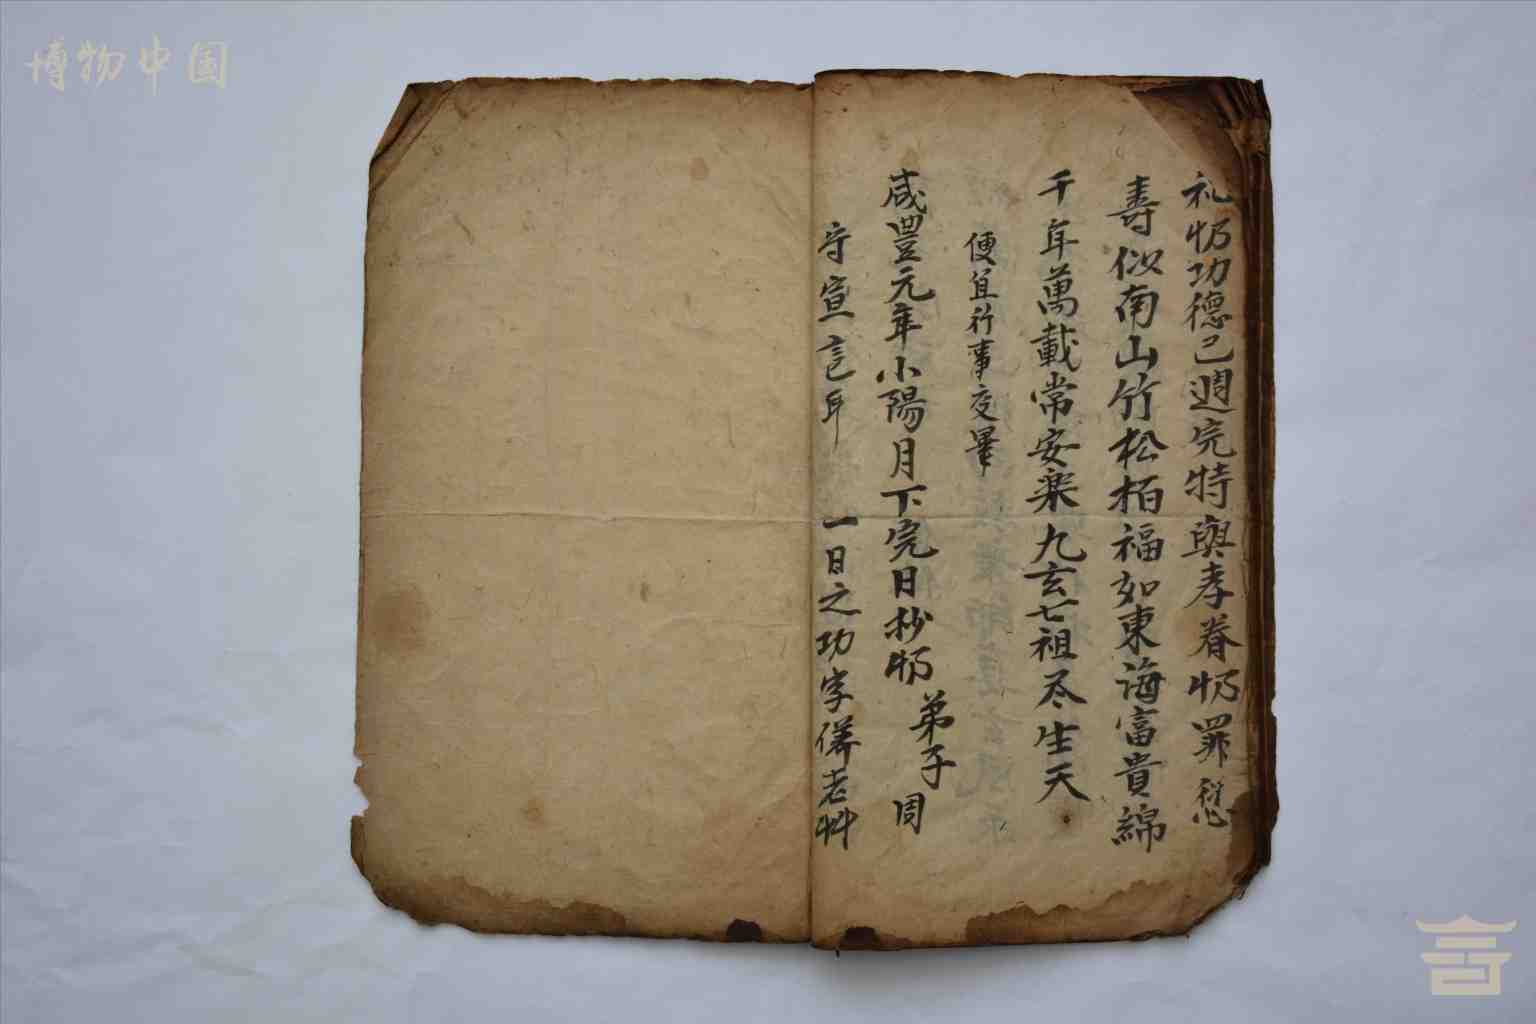 礼忏功德已週完特與孝眷忏罪愆
壽似南山竹松柏福如東海富貴綿
千年萬載常安楽九玄七祖尽生天
便宜行事交畢
咸豐元年小陽月下完日抄忏 弟子周
守宣 一日之功字
博物中国